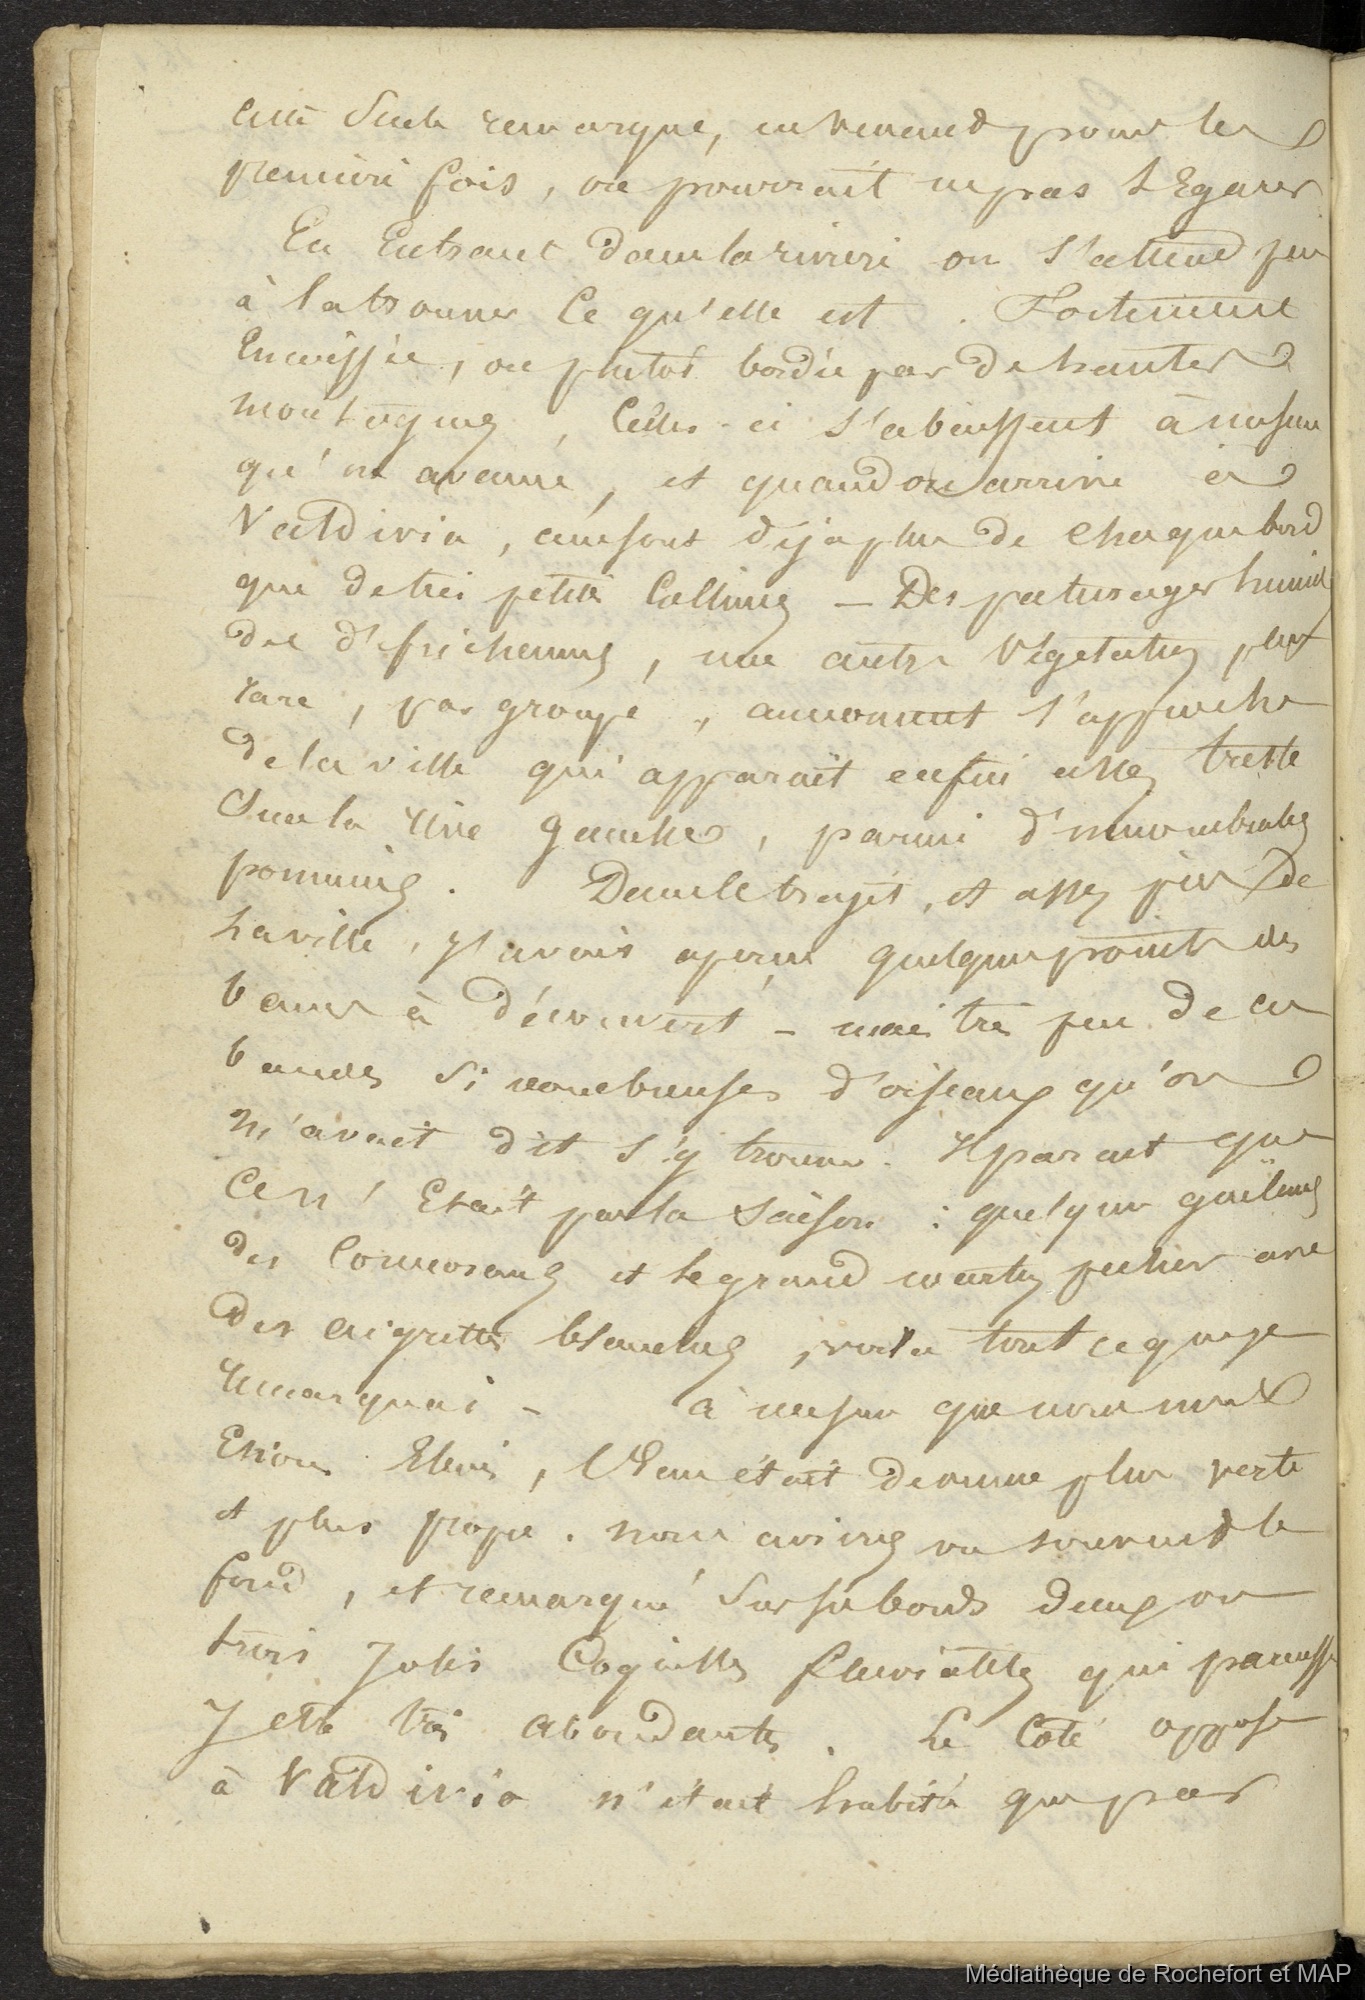 cette seule remarque, en venant pour la
première fois, on pourrait ne pas s'Egarer
En Entrant dans la rivière on s'attend peu
à la trouver Ce qu'elle est . Fortement
Encaissée, ou plutot bordée par de hautes
montagnes, Celles-ci s'abaissent à mesure
qu'on avance, et quand on arrive à
Valdivia, ce ne sont déja plus de chaque bord
que de très petites Collines — Des paturages humides
des d'frichements, une autre Végetation plus
rare, par groupe, annoncent l'approche
de la ville qui apparaît enfin assez triste
Sur la rive gauche, parmi d'innombrables
pommiers. Dans le trajet, et assez près de
la ville, j'avais aperçu quelques points des
bancs à découvert - mais très peu de ces
bandes si nombreuses d'oiseaux qu'on
m'avait dit s'y trouver. Il parait que
Ce n'Etait pas la Saison : quelques goëlands
des Cormorans et le grand martin pecheur avec
des aigrettes blanches, voila tout ce que je
remarquai - à mesure que nous nous
Etions Elevés, l'Eau était devenue plus verte
et plus propre. nous avions vu souvent le
fond, et remarqué Sur ses bords deux ou
trois Jolies Coquilles fluviatiles qui paraissent
y etre très abondantes. Le Coté opposé
à Valdivia n'était habité que par
Médiathèque de Rochefort et MAP